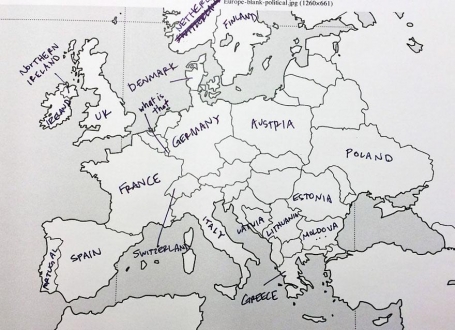 Europe-blank-political.jpg (1260x661)
FINLAND
NORTHERN
IRELAND
DENMARK
what is
that
IRELAND
UK
GERMANY
AUSTRIA
POLAND
FRANCE
ESTONIA
ITALY
LATVIA
LITHUANIA
MOLDOVA
...
SWITZERLAND
PORTUGAL
SPAIN
GREECE